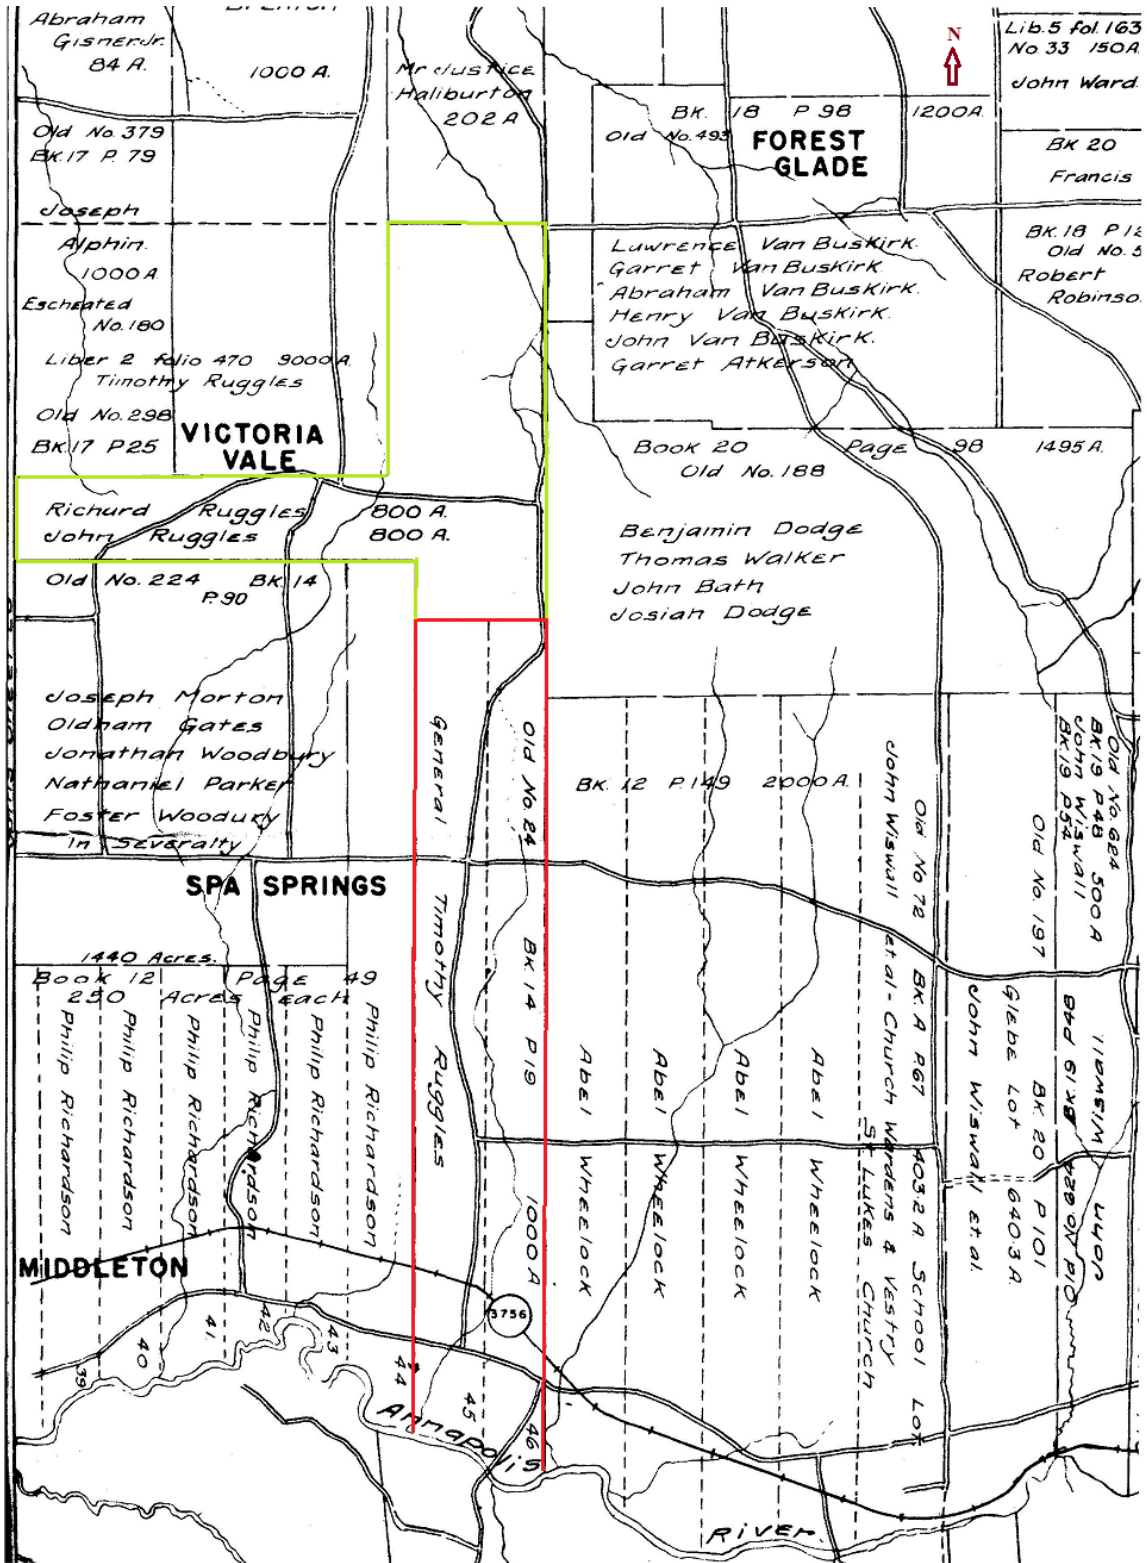 Abraham
Gisner Jr.
84 A.
1000 A.
Mr Justice
Haliburton
202 A
N
Lib. 5 fol. 163
No. 33 150A
John Ward
BK. 18 P 98 1200A
Old No. 493
FOREST
GLADE
BK 20
Francis
Old No. 379
BK. 17 P. 79
Joseph
Alphin.
1000 A
Escheated
No. 180
Liber 2 folio 470 9000 A
Timothy Ruggles
Old No. 298
BK. 17 P 25
VICTORIA
VALE
Lawrence Van Buskirk.
Garret Van Buskirk
Abraham Van Buskirk.
Henry Van Buskirk.
John Van Buskirk.
Garret Atkerson
BK. 18 P 12
Old No. 5
Robert
Robinso
Book 20 Page 98 1495 A.
Old No. 188
Richard Ruggles 800 A.
John Ruggles 800 A.
Benjamin Dodge
Thomas Walker
John Bath
Josiah Dodge
Old No. 224 BK. 14
P. 90
Joseph Morton
Oldham Gates
Jonathan Woodbury
Nathaniel Parker
Foster Woodury
In Severalty
SPA SPRINGS
1440 Acres.
Book 12 Page 49
250 Acres each
Philip Richardson
Philip Richardson
Philip Richardson
Philip Richardson
Philip Richardson
Philip Richardson
General Timothy Ruggles
Old No. 24 BK 14 P 19 1000 A
BK. 12 P. 149 2000 A.
Abel Wheelock
Abel Wheelock
Abel Wheelock
Abel Wheelock
Old No 72 BK. A P. 67 403.2 A School Lot
John Wiswall et.al - Church Wardens & Vestry
St Lukes Church
Old No. 624
BK. 19 P48 500 A
John Wiswall
BK. 19 P54
Old No. 197 BK. 20 P 101
Glebe Lot 640.3 A.
John Wiswall et.al
John Wiswall
Old No 624 BK. 19 P48
MIDDLETON
3756
39
40
41.
42
43
44
45
46
Annapolis
River.